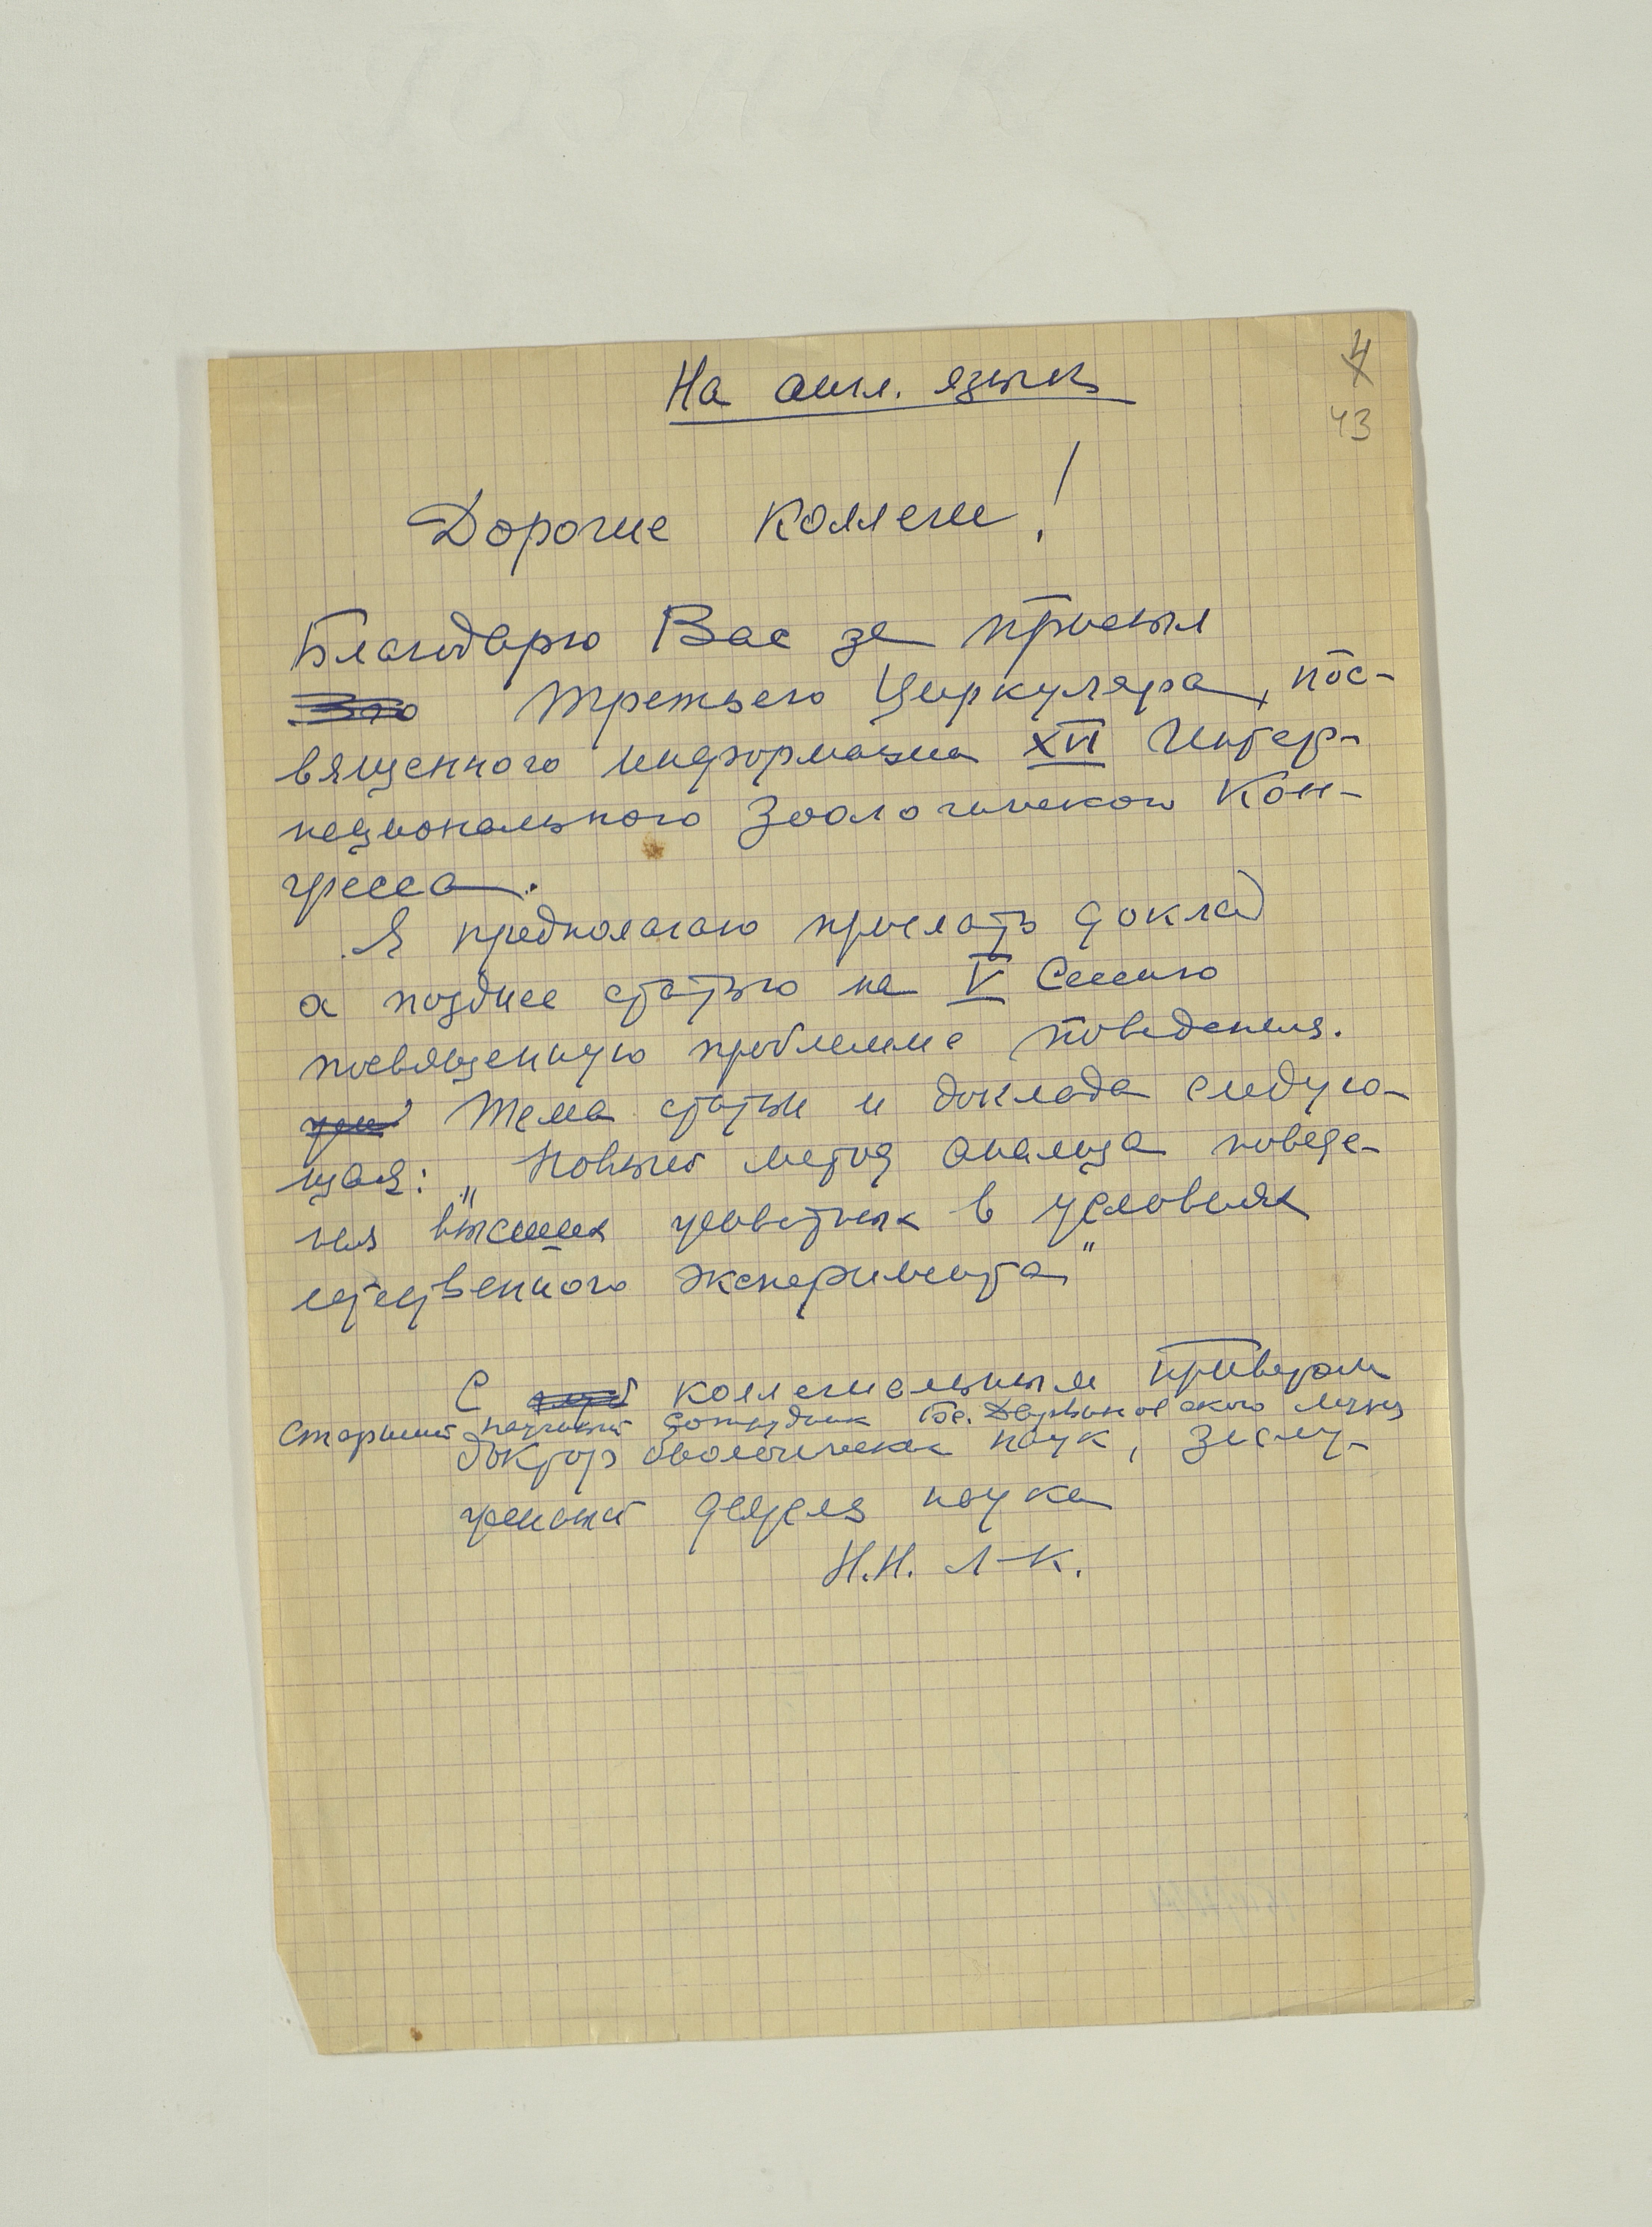 На англ. языке
4
43
Дорогие Коллеги!
Благодарю Вас за присыл
третьего Циркуляра, пос-
вященного информации XVI Интер-
национального Зоологического Кон-
гресса.
Я предполагаю прислать доклад
а позднее статью на V Сессию
посвященную проблеме поведения.
Тема статьи и доклада следую-
щая: „Новый метод анализа поведе-
ния высших животных в условиях
естественного эксперимента"
С коллегиальным приветом
Старший научный сотрудник Гос. Дарвиновского музея
доктор биологических наук, заслу-
женный деятель науки
Н.Н. Л-К.